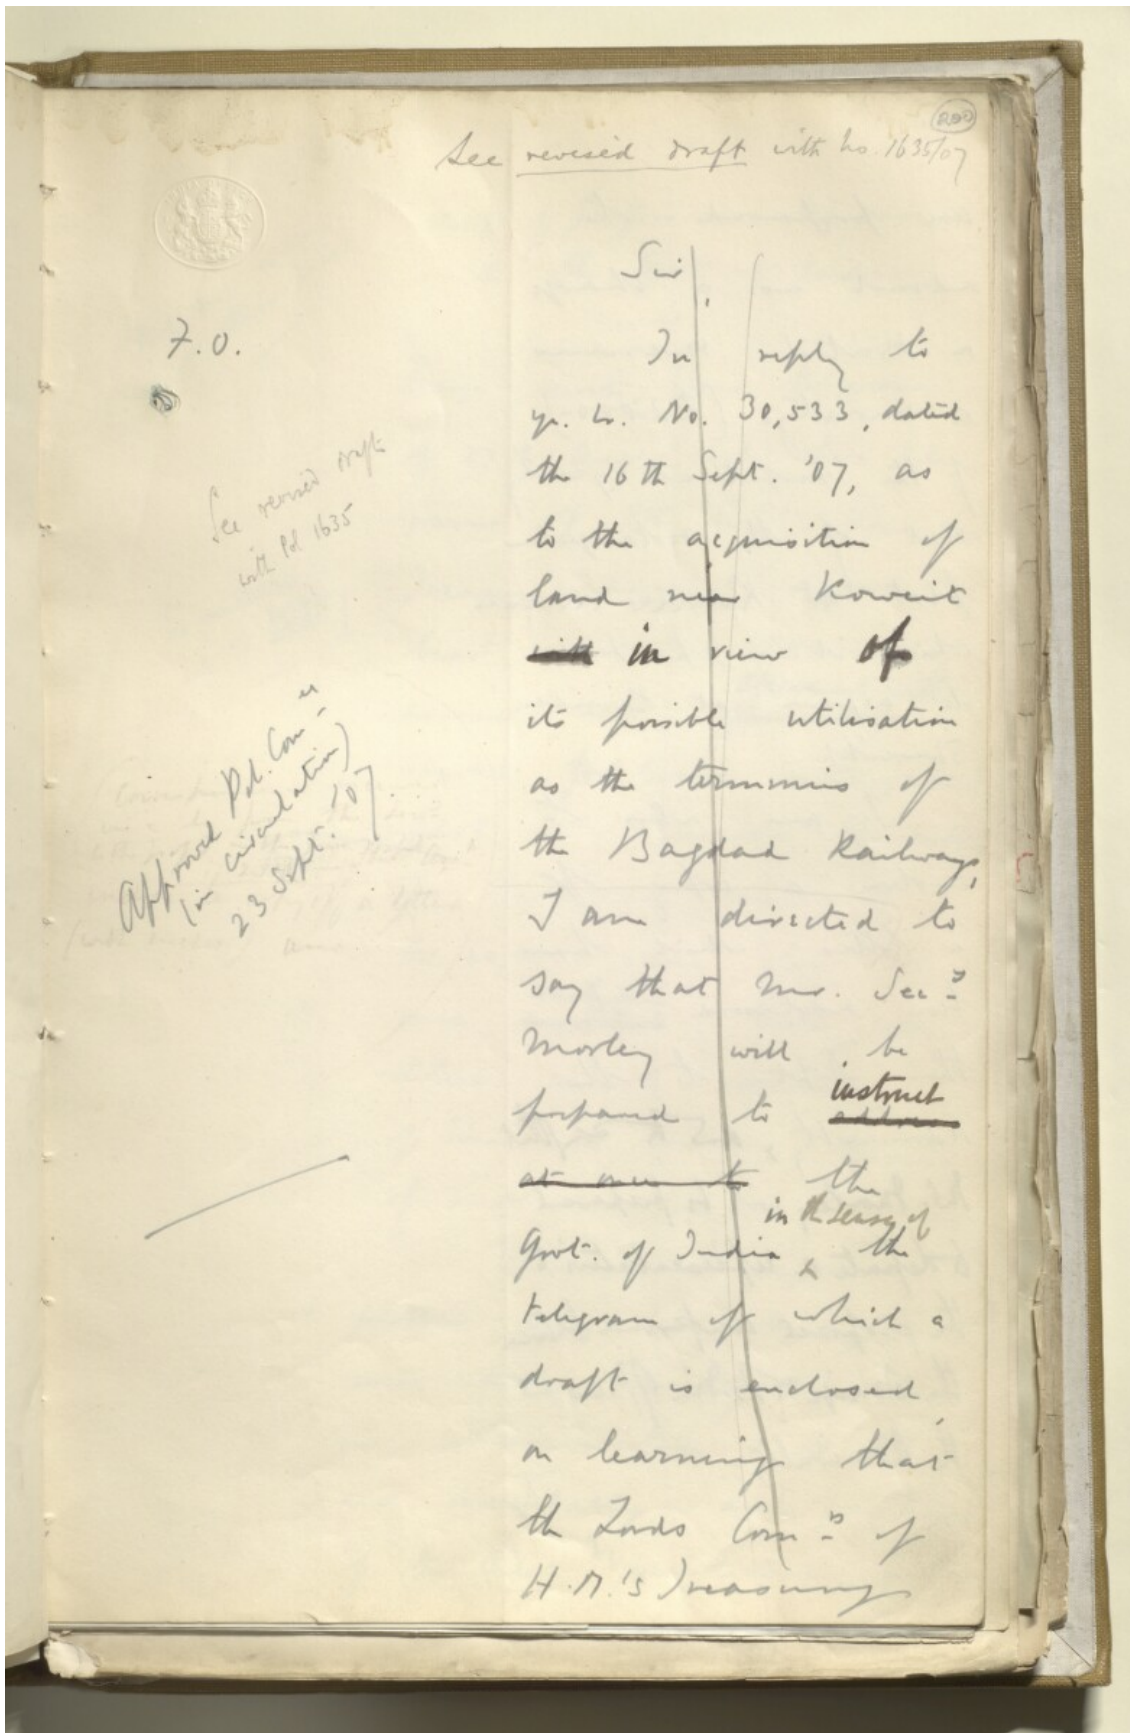 See revised draft with no. 1635/07
F.O.
See revised draft
with Pol 1635
Approved Pol. Com.ee
(in circulation)
23 Sept. '07
Sir,
In reply to
yr. lr. No. 30,533, dated
the 16th Sept. '07, as
to the acquisition of
land near Koweit
with in view of
its possible utilisation
as the terminus of
the Bagdad Railway,
I am directed to
say that Mr. Secy
Morley will be
instruct
prepared to address
at once to the
in the sense of
Govt. of India ^ the
telegram of which a
draft is enclosed,
on learning that
the Lords Comrs of
H.M.'s Treasury